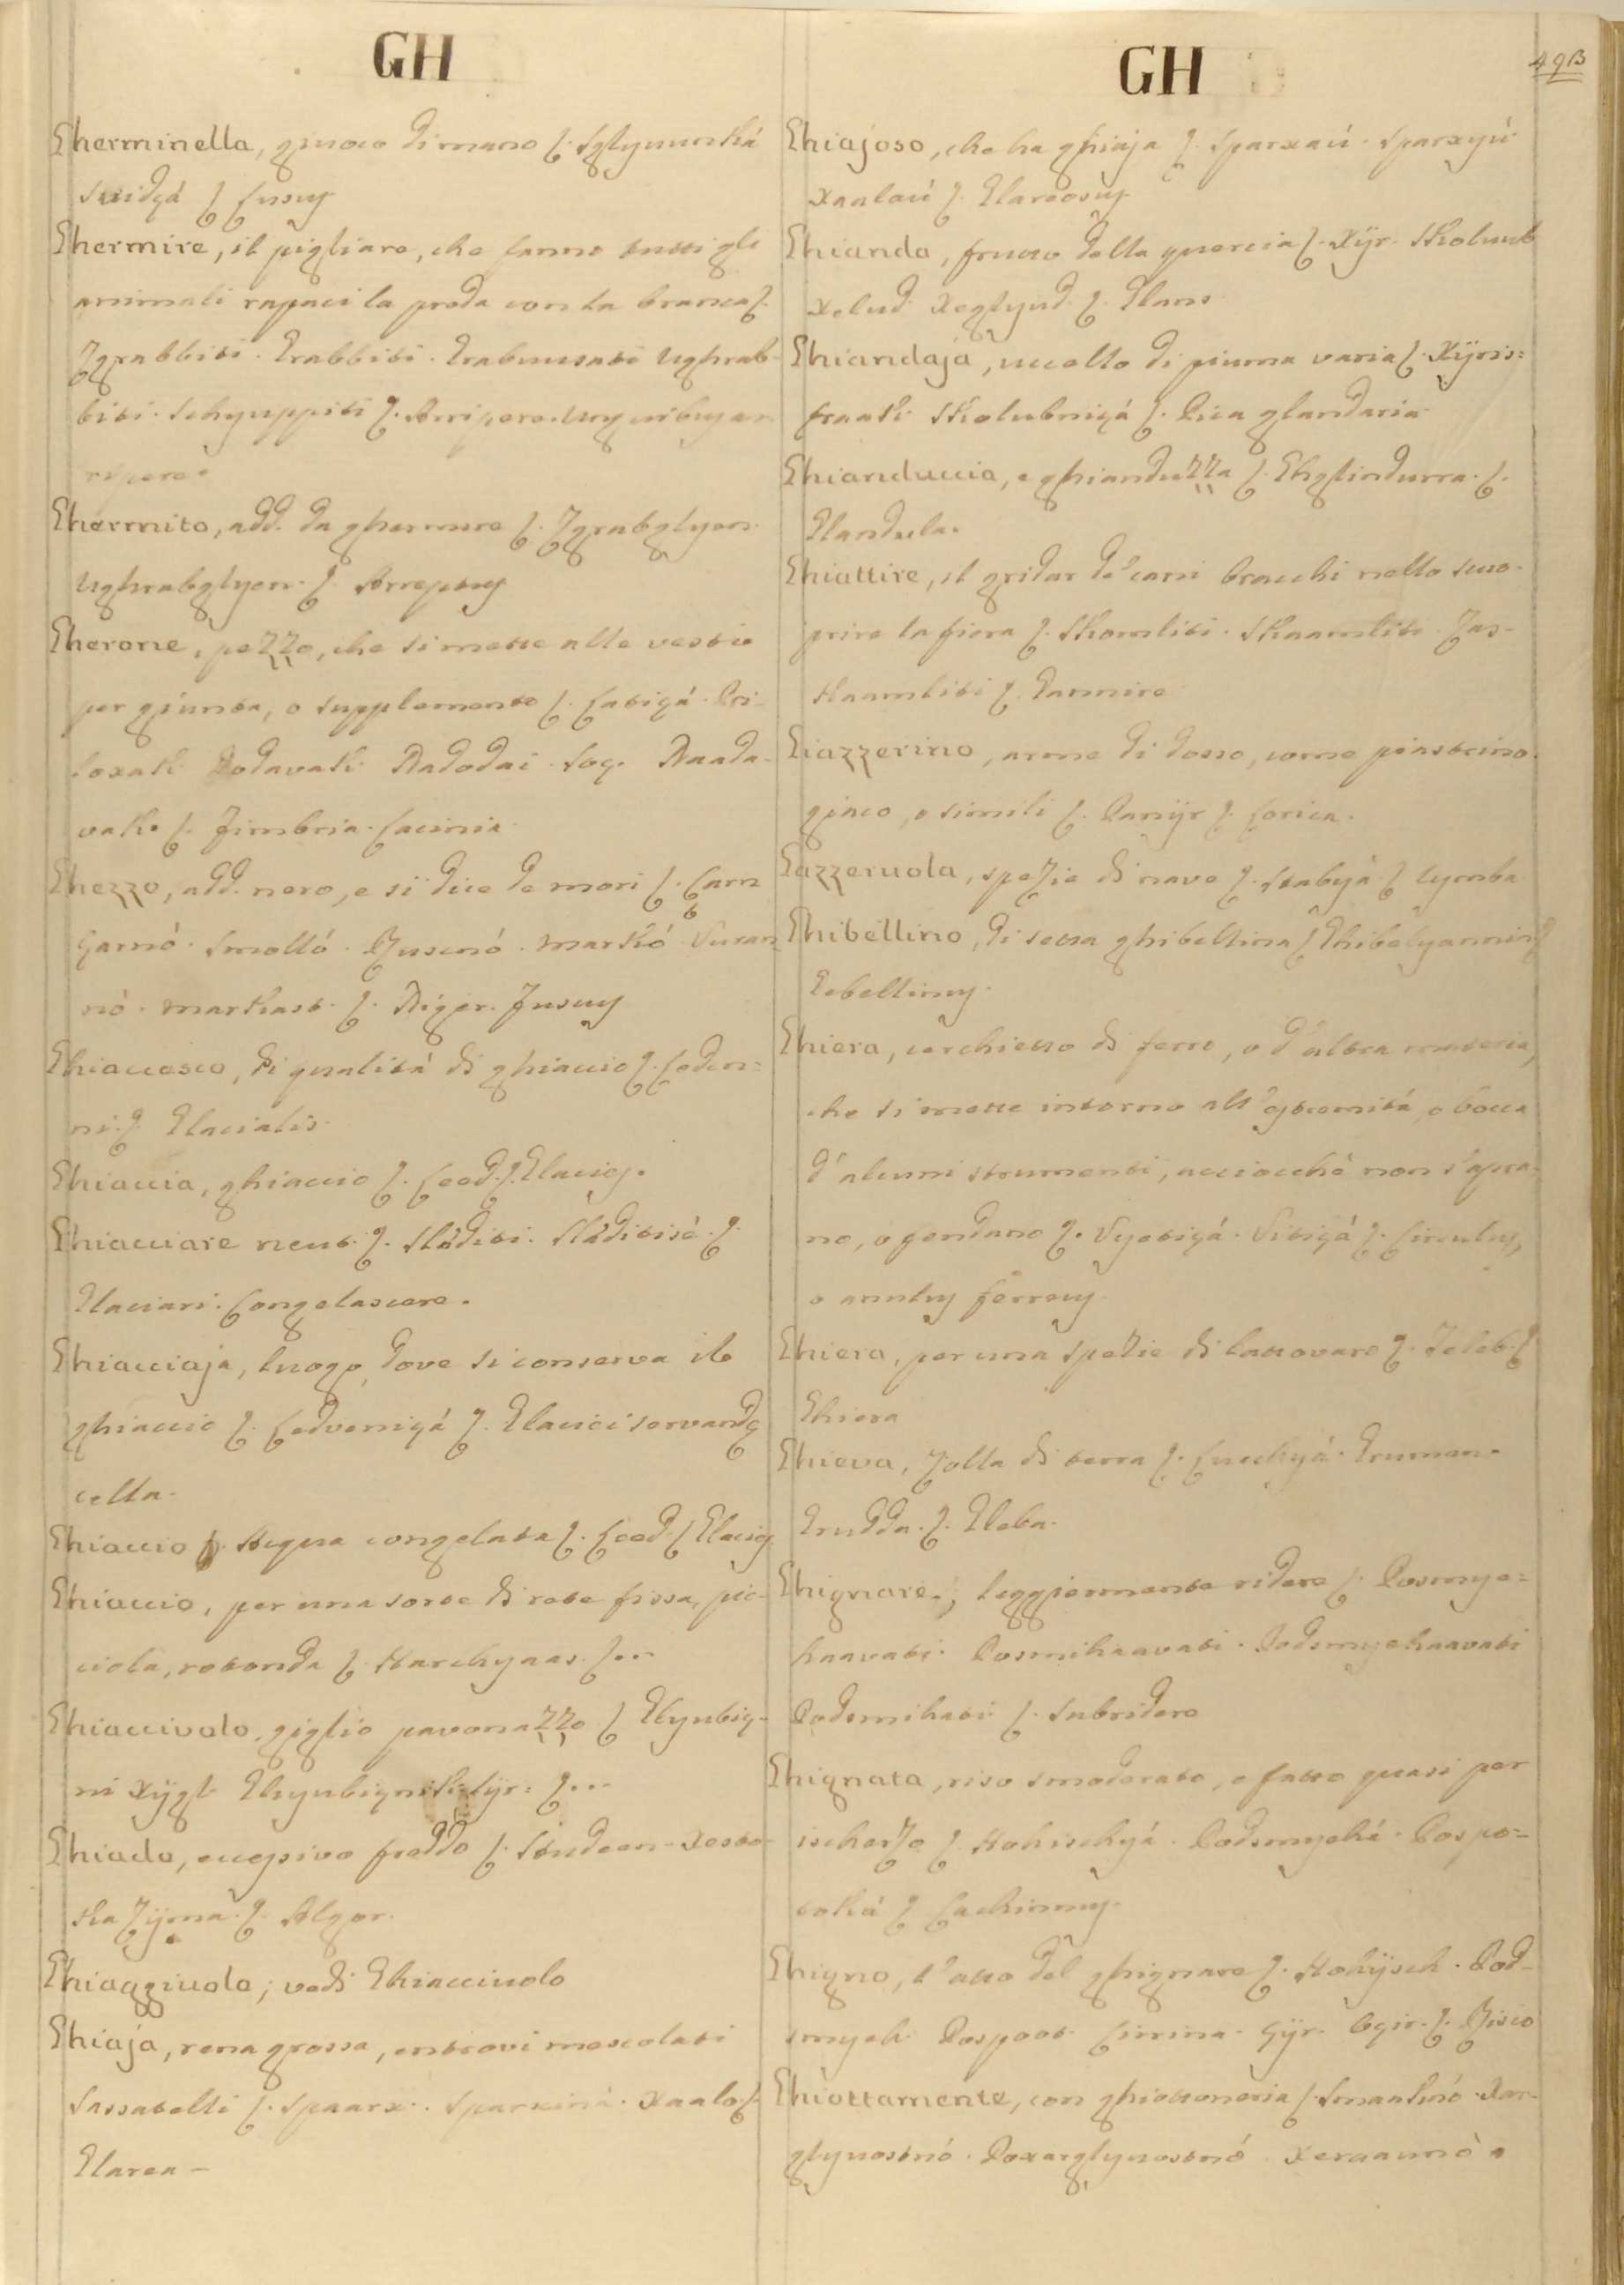 GH
Gherminella, giuoco di mano ʃ. Sglyunnská
ʃ Lusus
Ghermire, il pigliare, che fanno tutti gli
animali rapaci la preda con la branca ʃ.
Zgrabbiti. Grabbiti. Ughrab-
biti. Schyuppiti ʃ. Arripere. Unguibus ar-
ripere.
Ghermito, add. da ghermire ʃ. Zgrabglyen.
Ughrabglyen. ʃ. Arreptus
Gherone, pezzo, che si mette alle vestie
per giunta, o supplemento ʃ. Latiçá. Pri-
loxak. Dodavak. Nadodai. Log. Naada-
vak. ʃ. Fimbria. Lacinia.
Ghezzo, add. nero, e si dice de mori ʃ. Carn
Garnó. Smolló. Markó. Vuran
nó. Markast. ʃ. Niger. Fusus
Ghiaccesco, di qualitá di ghiaccio ʃ. Leden=
ni. ʃ. Glacialis.
Ghiaccia, ghiaccio ʃ. Leed. ʃ. Glacies.
Ghiacciare neut. ʃ. Sláditi. Sláditisè. ʃ
Glaciari. Congelascere.
Ghiacciaja, luogo, dove si conserva ile
ghiaccio ʃ. Ledveniçá ʃ. Glaciei servandę
cella.
Ghiaccio ʃ. Acqua congelata ʃ. Leed. ʃ Glacies
Ghiaccio, per una sorte di rete fissa, pic-
ciola, rotonda ʃ. Harchyaas. ʃ...
Ghiaccivolo, giglio pavonazzo ʃ Glyubiç-
ni Xÿgl. Glyubiçnik-lÿr: ʃ...
Ghiado, eccesivo freddo ʃ. Studeen-Xesto-
ka Zÿma. ʃ. Algor.
Ghiaggivolo; vedi Ghiaccivolo
Ghiaja, rena grossa, entrovi mescolati
Sassatelli ʃ. Spaarx. Sparxiná. Xaalo. ʃ.
Glarea -
GH
49B
Ghiajoso, che ha ghiaja ʃ. Sparxaú. Sparxyú
Xaalaú ʃ. Glareosus
Ghianda, frutto della quercia ʃ. Xÿr. Skolumb
Xelud. Xeglyud. ʃ. Glans.
Ghiandaja, uccello di piuma varia ʃ. Xÿris=
fraak. Skolubniçá ʃ. Pica glandaria.
Ghianduccia, e ghianduzza ʃ. Ghglindurra. ʃ.
Glandula.
Ghiattire, il gridar de' cani bracchi nello scuo-
prire la fiera ʃ. Skomliti. Skaamliti. Zas-
kaamliti ʃ. Gannire
Giazzerino, arme di dosso, come piastrino.
giaco, o simili ʃ. Panÿr ʃ. Lorica.
Gazzeruola, spezie di nave ʃ. Skabyá. ʃ Cymba
Ghibellino, di setta ghibellina ʃ Ghibelyannin ʃ
Gebellinus.
Ghiera, cerchietto di ferro, o d'altra materia,
che si mette intorno all'estremitá, o bocca
d'alcuni strumenti, acciocchè non s'apra-
no, o fendano ʃ. Vyetiçá. Vitiçá ʃ. Circulus,
o anulus ferreus.
Ghiera, per una spezie di lattovaro ʃ. Zeleb. ʃ
Ghiera
Ghieva, zolla di terra ʃ. Grumen.
Grudda. ʃ. Gleba.
Ghignare, leggiermente ridere ʃ. Posmye=
haavati. Posmihaavati. Podsmyehaavati
Podsmihati ʃ. Subridere
Ghignata, riso smoderato, e fatto quasi per
ischerzo ʃ. Hohischyá. Podsmyehá. Pospo=
toká ʃ Cachinnus.
Ghigno, l'atto del ghignare ʃ. Hohÿsch. Pod-
smyeh. Pospoot. Cirrina. Gÿr. Ogir. ʃ. Risio
Ghiottamente, con ghiottoneria ʃ. Smaaknó. Xar-
glyuostnó. Poxarglyuostnó. Xeraannó.